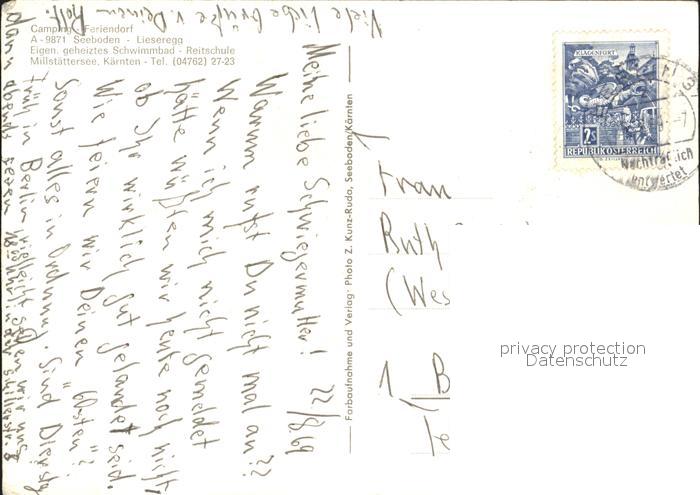 Camping - Feriendorf
A - 9871 Seeboden - Lieseregg
Eigen. geheiztes Schwimmbad - Reitschule
Millstättersee, Kärnten - Tel. (04762) 27-23
Meine liebe Schwiegermutter! 22/8/69
Warum rufst Du nicht mal an??
Wenn ich mich nicht gemeldet
hätte wüßten wir heute noch nicht,
ob Ihr wirklich gut gelandet seid.
Wie feiern wir Deinen 60sten?
Sonst alles in Ordnung. Sind Dienstag
früh in Berlin vielleicht sehen wir uns
dann abends gegen 18 Uhr in der Schillerstr. 8
Viele liebe Grüße v. Deinem
Rolf.
Farbaufnahme und Verlag: Photo Z. Kunz-Ruda, Seeboden/Kärnten
KLAGENFURT
2s
REPUBLIK ÖSTERREICH
Nachträglich
entwertet
Frau
Ruth
(Wes
1 B
privacy protection
Datenschutz